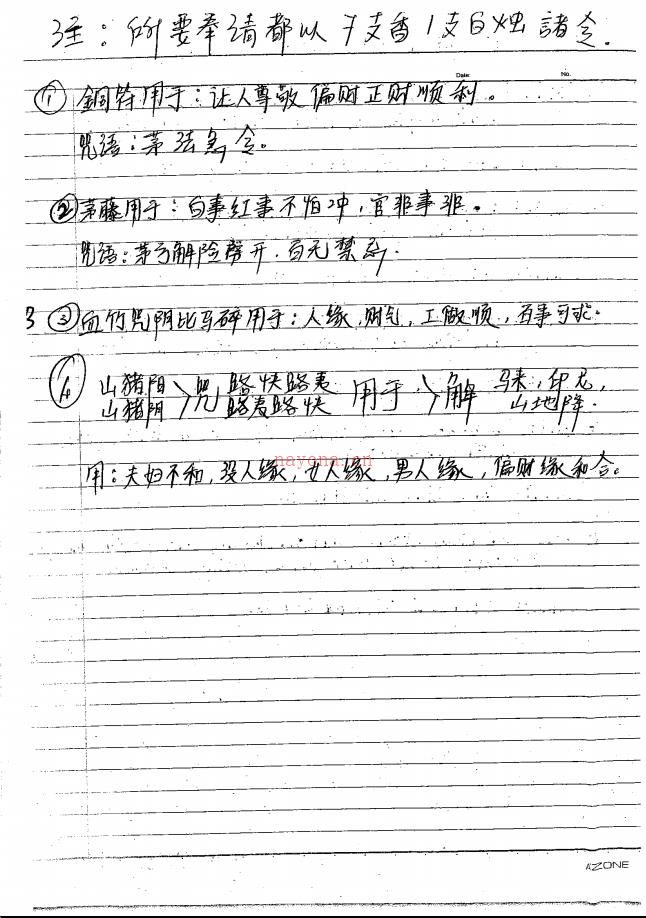 注：所要奉请都以7支香1支白烛諸念.
Date: No.
① 銅符用于：让人尊敬 偏财正财顺利。
咒语：茅法急令。
② 茅藤用于：白事红事不怕冲，官非事非。
咒语：茅弓解险劈开．百无禁忌．
3 ③ 血竹咒阴比马碎用于：人缘，财气，工做顺，百事可求．
4 山猪阳 > 咒 路快路夷 用于 > 解 马来，印尼，
山猪阴 路夷路快 山地降．
nayona.cn
用：夫妇不和，没人缘，女人缘，男人缘，偏财缘和合。
AZONE